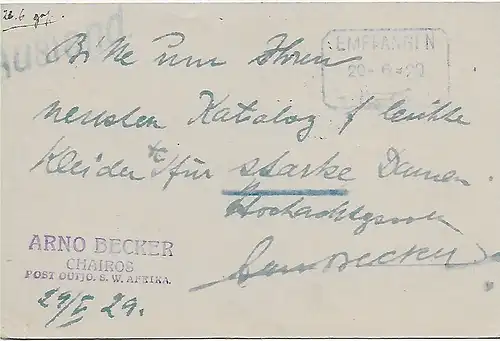 26.6
Ausland.
EMPFANGEN
Bitte um Ihren
20. 6. 29
neusten Katalog f leichte
Kleider etc für starke Damen.
Hochachtungsvoll
Arno Becker
ARNO BECKER
CHAIROS
POST OUTJO. S. W. AFRIKA.
29/V 29.